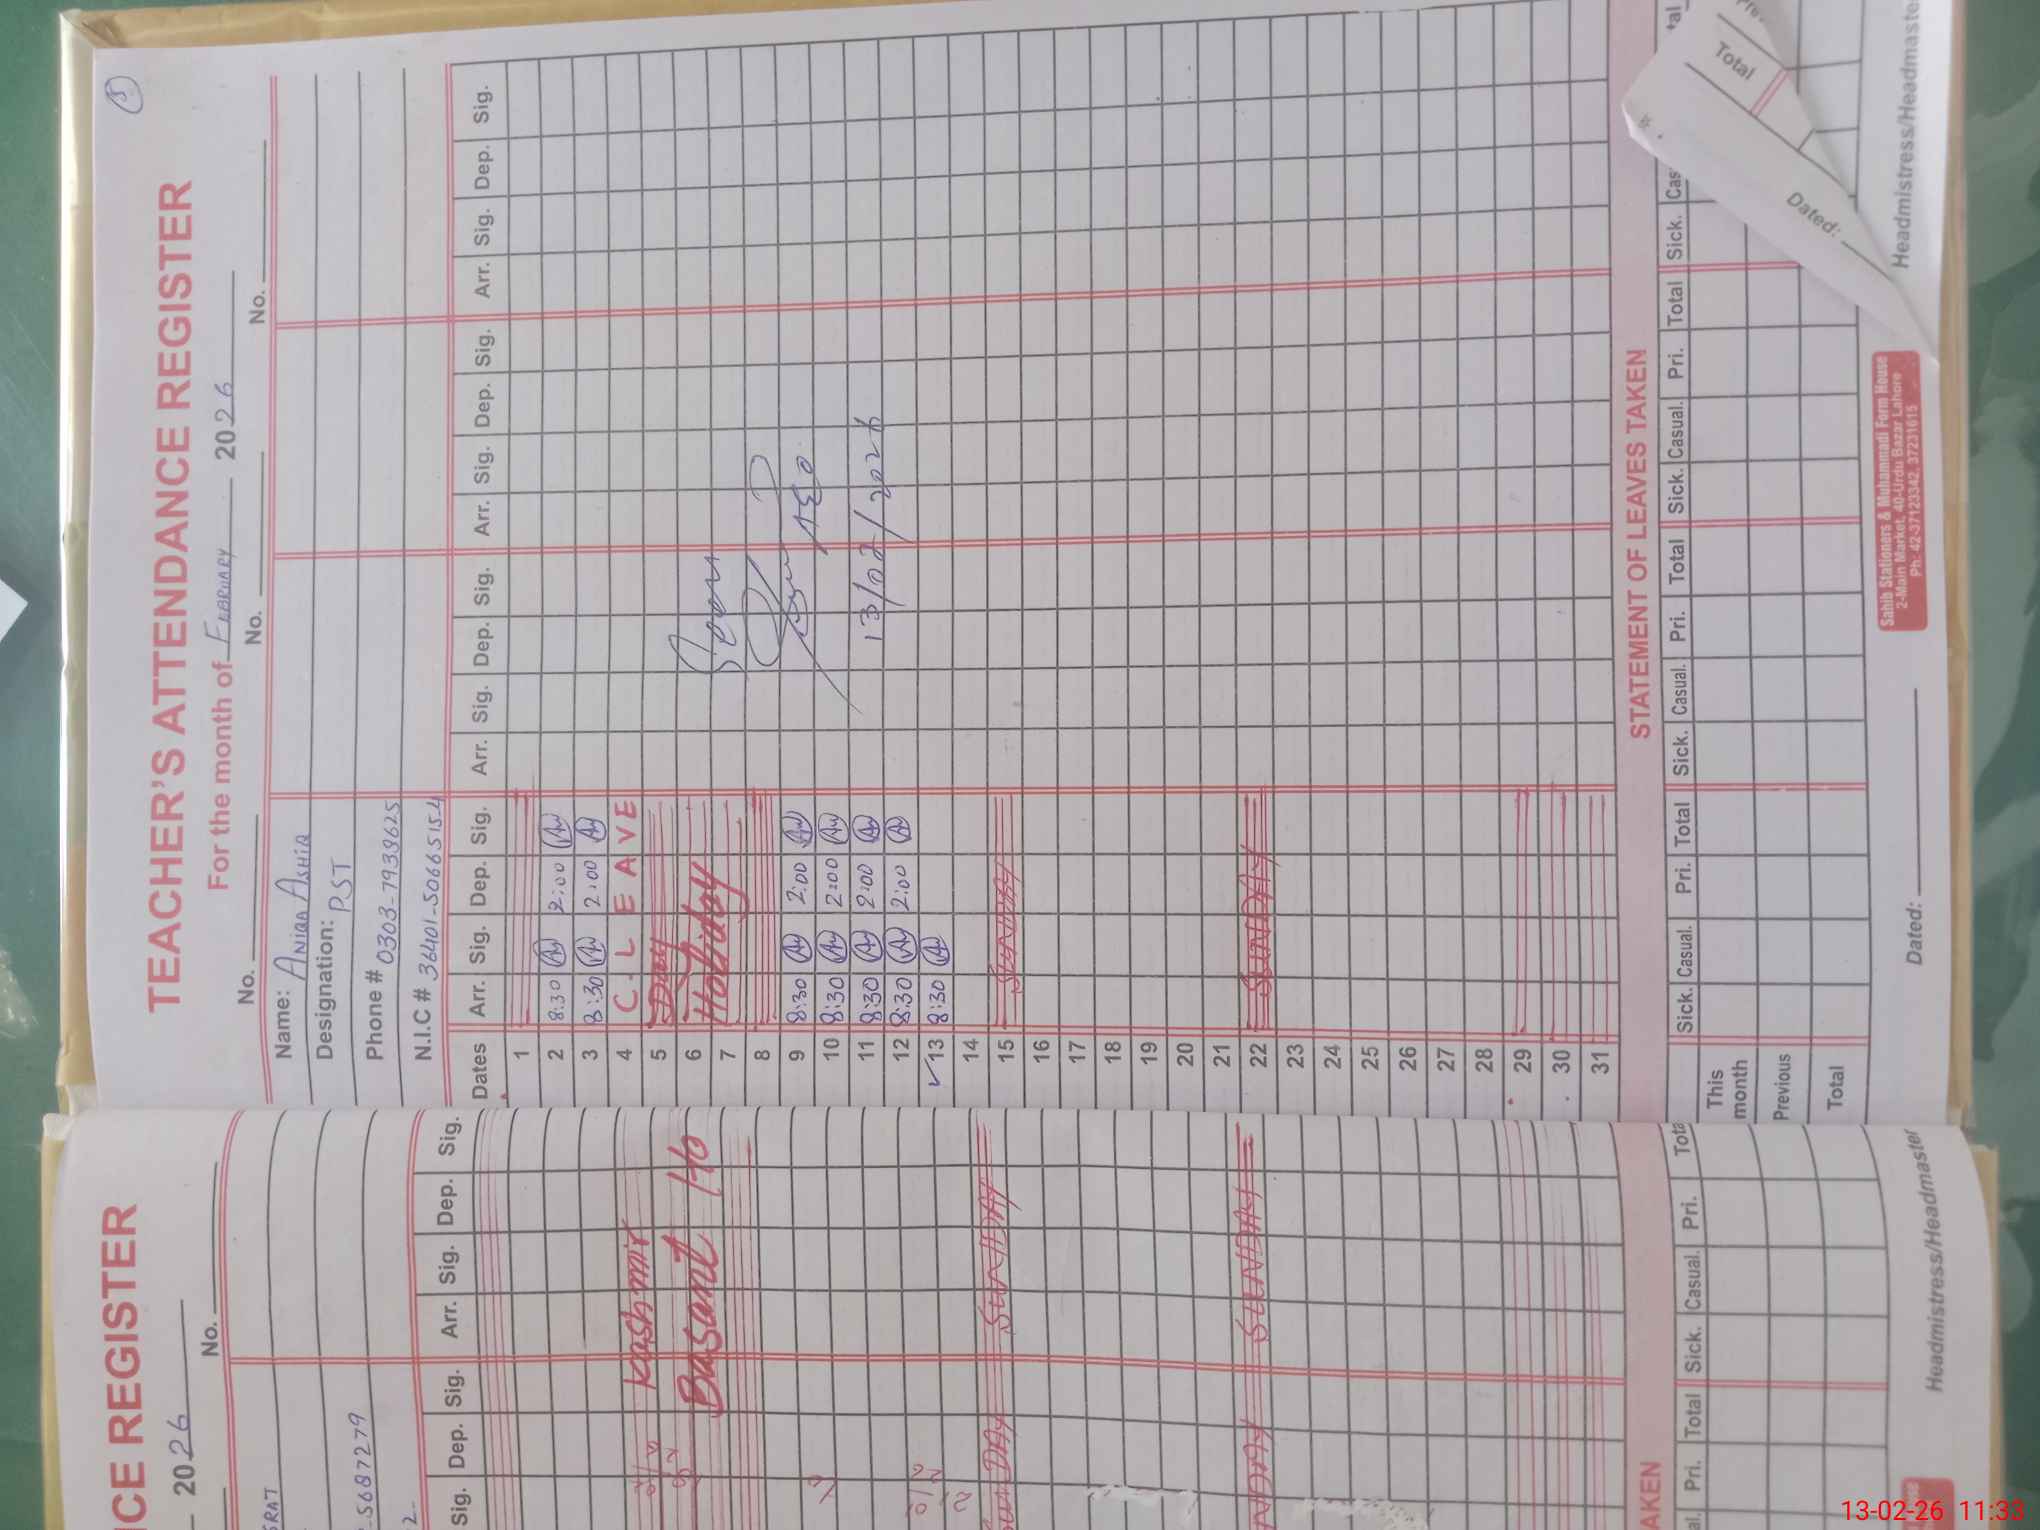 5
TEACHER'S ATTENDANCE REGISTER
For the month of FEBRUARY 2026
No. No. No.
Name: ANIQA ASHIQ
Designation: PST
Phone # 0303-7939625
N.I.C # 36401-5066515-4
Dates Arr. Sig. Dep. Sig. Arr. Sig. Dep. Sig. Arr. Sig. Dep. Sig. Arr. Sig. Dep. Sig.
1
2 8:30 2:00
3 8:30 2:00
4 C. LEAVE
5 Day
6
7 Holiday
8
9 8:30 2:00
10 8:30 2:00
11 8:30 2:00
12 8:30 2:00
13 8:30
14
15 SUNDAY
16
17
18
19
20
21
22 SUNDAY
23
24
25
26
27
28
29
30
31
Seen
AEO
13/02/2026
STATEMENT OF LEAVES TAKEN
Sick. Casual. Pri. Total Sick. Casual. Pri. Total Sick. Casual. Pri. Total Sick. Cas
This month
Previous
Total
Dated:
Sahib Stationers & Muhammadi Form House
2-Main Market, 40-Urdu Bazar Lahore
Ph: 42-37123342, 37231615
Headmistress/Headmaste
Total
Dated:
CE REGISTER
2026
No.
SRAT
5687279
2-
Sig. Dep. Sig. Arr. Sig. Dep. Sig.
Kashmir
Basant Ho
SUNDAY SUNDAY
NDAY SUNDAY
AKEN
al. Pri. Total Sick. Casual. Pri. Tota
Headmistress/Headmaster
13-02-26 11:33